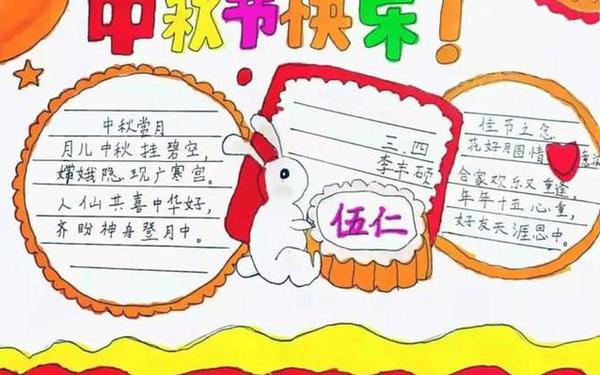 中秋节快乐！
中秋赏月
月儿中秋挂碧空，
嫦娥隐现广寒宫。
人仙共喜中华好，
齐盼神舟登月中。
三、四
李丰硕
伍仁
佳节之念
花好月圆情
合家欢乐又重逢。
年年十五心重，
好友天涯思中。